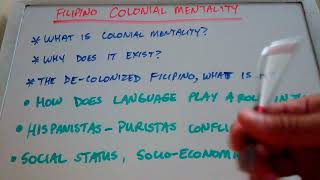 FILIPINO COLONIAL MENTALITY
* WHAT IS COLONIAL MENTALITY?
* WHY DOES IT EXIST?
* THE DE-COLONIZED FILIPINO, WHAT IS
• HOW DOES LANGUAGE PLAY A ROLE IN
• HISPANISTAS - PURISTAS
• SOCIAL STATUS,